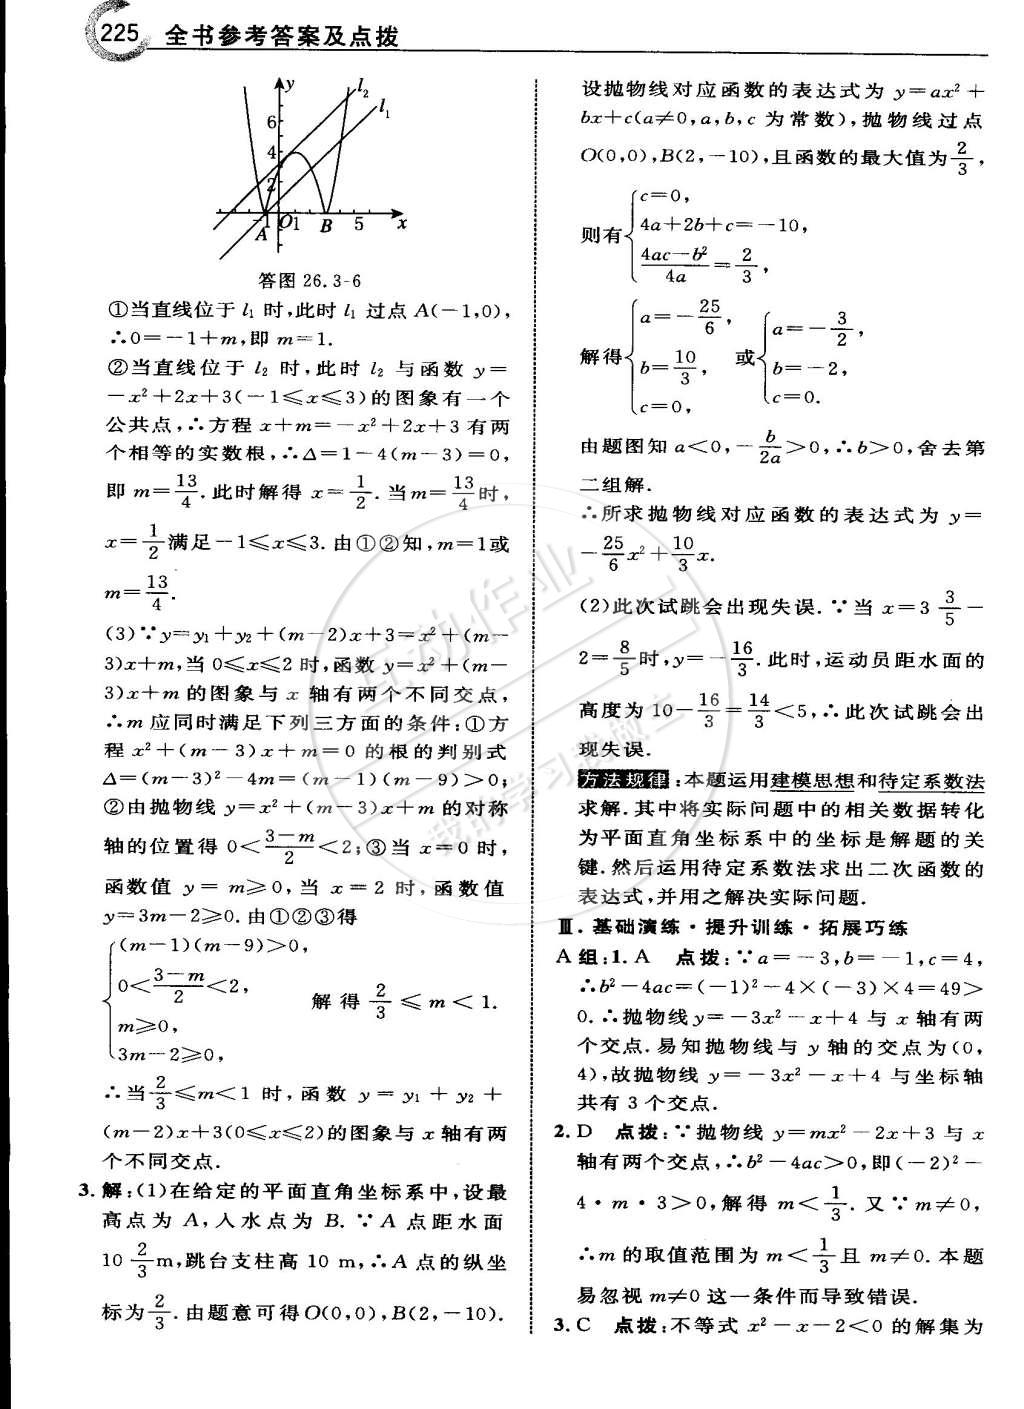 225 全书参考答案及点拨
y
l₂
l₁
6
4
2
-1 O 1 5 x
A B
答图26.3-6
①当直线位于 l₁ 时,此时 l₁ 过点 A(-1,0),
∴0=-1+m,即 m=1.
②当直线位于 l₂ 时,此时 l₂ 与函数 y=
-x²+2x+3(-1≤x≤3)的图象有一个
公共点,∴方程 x+m=-x²+2x+3 有两
个相等的实数根,∴Δ=1-4(m-3)=0,
即 m=13/4.此时解得 x=1/2.当m=13/4时,
x=1/2满足-1≤x≤3.由①②知,m=1或
m=13/4.
(3)∵y=y₁+y₂+(m-2)x+3=x²+(m-
3)x+m,当 0≤x≤2 时,函数 y=x²+(m-
3)x+m 的图象与 x 轴有两个不同交点,
∴m 应同时满足下列三方面的条件:①方
程 x²+(m-3)x+m=0 的根的判别式
Δ=(m-3)²-4m=(m-1)(m-9)>0;
②由抛物线 y=x²+(m-3)x+m 的对称
轴的位置得 0<(3-m)/2<2;③当 x=0 时,
函数值 y=m≥0,当 x=2 时,函数值
y=3m-2≥0.由①②③得
{(m-1)(m-9)>0,
0<(3-m)/2<2, 解得 2/3≤m<1.
m≥0,
3m-2≥0,
∴当2/3≤m<1 时,函数 y=y₁+y₂+
(m-2)x+3(0≤x≤2)的图象与 x 轴有两
个不同交点.
3.解:(1)在给定的平面直角坐标系中,设最
高点为 A,入水点为 B.∵A 点距水面
10 2/3 m,跳台支柱高 10 m,∴A 点的纵坐
标为2/3.由题意可得O(0,0),B(2,-10).
设抛物线对应函数的表达式为 y=ax²+
bx+c(a≠0,a,b,c 为常数),抛物线过点
O(0,0),B(2,-10),且函数的最大值为2/3,
则有{c=0,
4a+2b+c=-10,
(4ac-b²)/4a=2/3,
解得{a=-25/6, b=10/3, c=0, 或{a=-3/2, b=-2, c=0.
由题图知 a<0,-b/2a>0,∴b>0,舍去第
二组解.
∴所求抛物线对应函数的表达式为 y=
-25/6x²+10/3x.
(2)此次试跳会出现失误.∵当 x=3 3/5-
2=8/5时,y=-16/3.此时,运动员距水面的
高度为 10-16/3=14/3<5,∴此次试跳会出
现失误.
方法规律:本题运用建模思想和待定系数法
求解.其中将实际问题中的相关数据转化
为平面直角坐标系中的坐标是解题的关
键.然后运用待定系数法求出二次函数的
表达式,并用之解决实际问题.
Ⅲ.基础演练·提升训练·拓展巧练
A 组:1.A 点拨:∵a=-3,b=-1,c=4,
∴b²-4ac=(-1)²-4×(-3)×4=49>
0.∴抛物线y=-3x²-x+4 与 x 轴有两
个交点.易知抛物线与 y 轴的交点为(0,
4),故抛物线 y=-3x²-x+4 与坐标轴
共有 3 个交点.
2.D 点拨:∵抛物线 y=mx²-2x+3 与 x
轴有两个交点,∴b²-4ac>0,即(-2)²-
4·m·3>0,解得 m<1/3.又∵m≠0,
∴m 的取值范围为 m<1/3且 m≠0.本题
易忽视 m≠0 这一条件而导致错误.
3.C 点拨:不等式 x²-x-2<0 的解集为